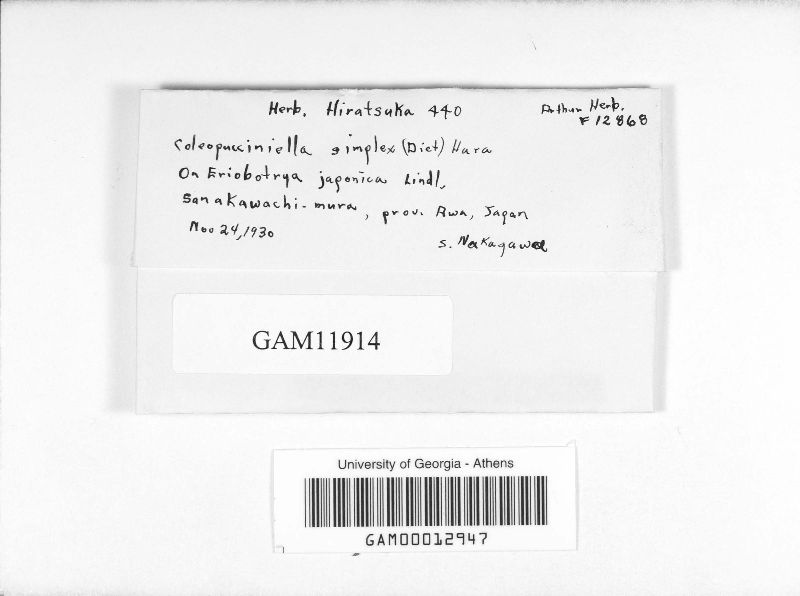 Herb. Hiratsuka 440
Arthur Herb.
F 12868
Coleopucciniella simplex (Diet) Hara
On Eriobotrya japonica Lindl,
Sanakawachi-mura, prov. Awa, Japan
Nov 24, 1930
S. Nakagawa
GAM11914
University of Georgia - Athens
GAM00012947